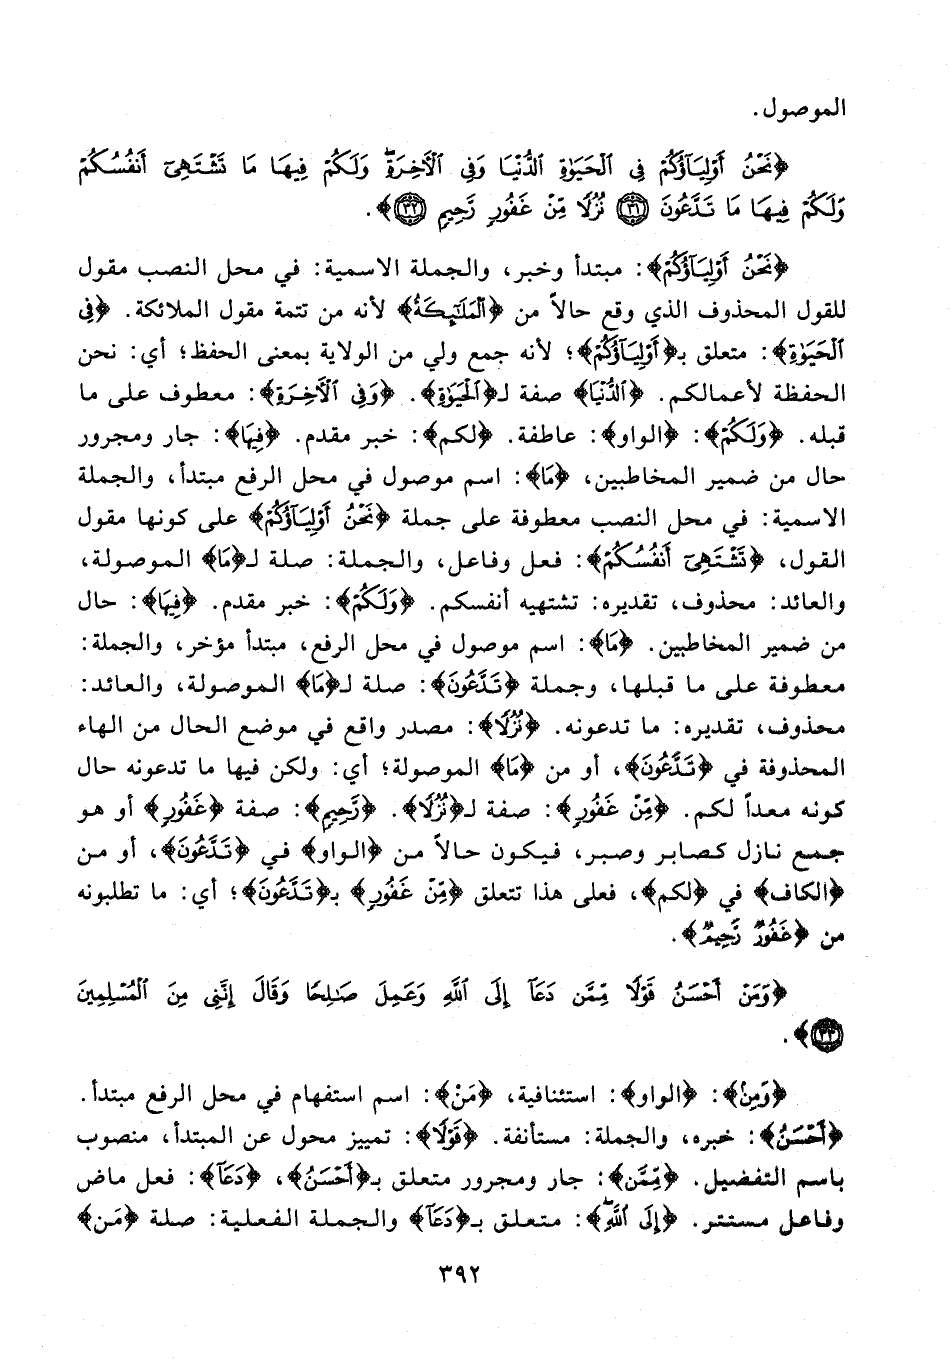 الموصول.
﴿نَحْنُ أَوْلِيَآؤُكُمْ فِى ٱلْحَيَوٰةِ ٱلدُّنْيَا وَفِى ٱلْأَخِرَةِۖ وَلَكُمْ فِيهَا مَا تَشْتَهِىٓ أَنفُسُكُمْ
وَلَكُمْ فِيهَا مَا تَدَّعُونَ ﴿٣١﴾ نُزُلًا مِّنْ غَفُورٍ رَّحِيمٍ ﴿٣٢﴾﴾.
﴿نَحْنُ أَوْلِيَآؤُكُمْ﴾: مبتدأ وخبر، والجملة الاسمية: في محل النصب مقول
للقول المحذوف الذي وقع حالاً من ﴿ٱلْمَلَـٰٓئِكَةُ﴾ لأنه من تتمة مقول الملائكة. ﴿فِى
ٱلْحَيَوٰةِ﴾: متعلق بـ﴿أَوْلِيَآؤُكُمْ﴾؛ لأنه جمع ولي من الولاية بمعنى الحفظ؛ أي: نحن
الحفظة لأعمالكم. ﴿ٱلدُّنْيَا﴾ صفة لـ﴿ٱلْحَيَوٰةِ﴾. ﴿وَفِى ٱلْأَخِرَةِ﴾: معطوف على ما
قبله. ﴿وَلَكُمْ﴾: ﴿الواو﴾: عاطفة. ﴿لكم﴾: خبر مقدم. ﴿فِيهَا﴾: جار ومجرور
حال من ضمير المخاطبين، ﴿مَا﴾: اسم موصول في محل الرفع مبتدأ، والجملة
الاسمية: في محل النصب معطوفة على جملة ﴿نَحْنُ أَوْلِيَآؤُكُمْ﴾ على كونها مقول
القول، ﴿تَشْتَهِىٓ أَنفُسُكُمْ﴾: فعل وفاعل، والجملة: صلة لـ﴿مَا﴾ الموصولة،
والعائد: محذوف، تقديره: تشتهيه أنفسكم. ﴿وَلَكُمْ﴾: خبر مقدم. ﴿فِيهَا﴾: حال
من ضمير المخاطبين. ﴿مَا﴾: اسم موصول في محل الرفع، مبتدأ مؤخر، والجملة:
معطوفة على ما قبلها، وجملة ﴿تَدَّعُونَ﴾: صلة لـ﴿مَا﴾ الموصولة، والعائد:
محذوف، تقديره: ما تدعونه. ﴿نُزُلًا﴾: مصدر واقع في موضع الحال من الهاء
المحذوفة في ﴿تَدَّعُونَ﴾، أو من ﴿مَا﴾ الموصولة؛ أي: ولكن فيها ما تدعونه حال
كونه معداً لكم. ﴿مِّنْ غَفُورٍ﴾: صفة لـ﴿نُزُلًا﴾. ﴿رَّحِيمٍ﴾: صفة ﴿غَفُورٍ﴾ أو هو
جمع نازل كصابر وصبر، فيكون حالاً من ﴿الواو﴾ في ﴿تَدَّعُونَ﴾، أو من
﴿الكاف﴾ في ﴿لكم﴾، فعلى هذا تتعلق ﴿مِّنْ غَفُورٍ﴾ بـ﴿تَدَّعُونَ﴾؛ أي: ما تطلبونه
من ﴿غَفُورٌ رَّحِيمٌ﴾.
﴿وَمَنْ أَحْسَنُ قَوْلًا مِّمَّن دَعَآ إِلَى ٱللَّهِ وَعَمِلَ صَـٰلِحًا وَقَالَ إِنَّنِى مِنَ ٱلْمُسْلِمِينَ
﴿٣٣﴾﴾.
﴿وَمَنْ﴾: ﴿الواو﴾: استئنافية، ﴿مَنْ﴾: اسم استفهام في محل الرفع مبتدأ.
﴿أَحْسَنُ﴾: خبره، والجملة: مستأنفة. ﴿قَوْلًا﴾: تمييز محول عن المبتدأ، منصوب
باسم التفضيل. ﴿مِّمَّن﴾: جار ومجرور متعلق بـ﴿أَحْسَنُ﴾، ﴿دَعَآ﴾: فعل ماض
وفاعل مستتر. ﴿إِلَى ٱللَّهِ﴾: متعلق بـ﴿دَعَآ﴾ والجملة الفعلية: صلة ﴿مَن﴾
٣٩٢